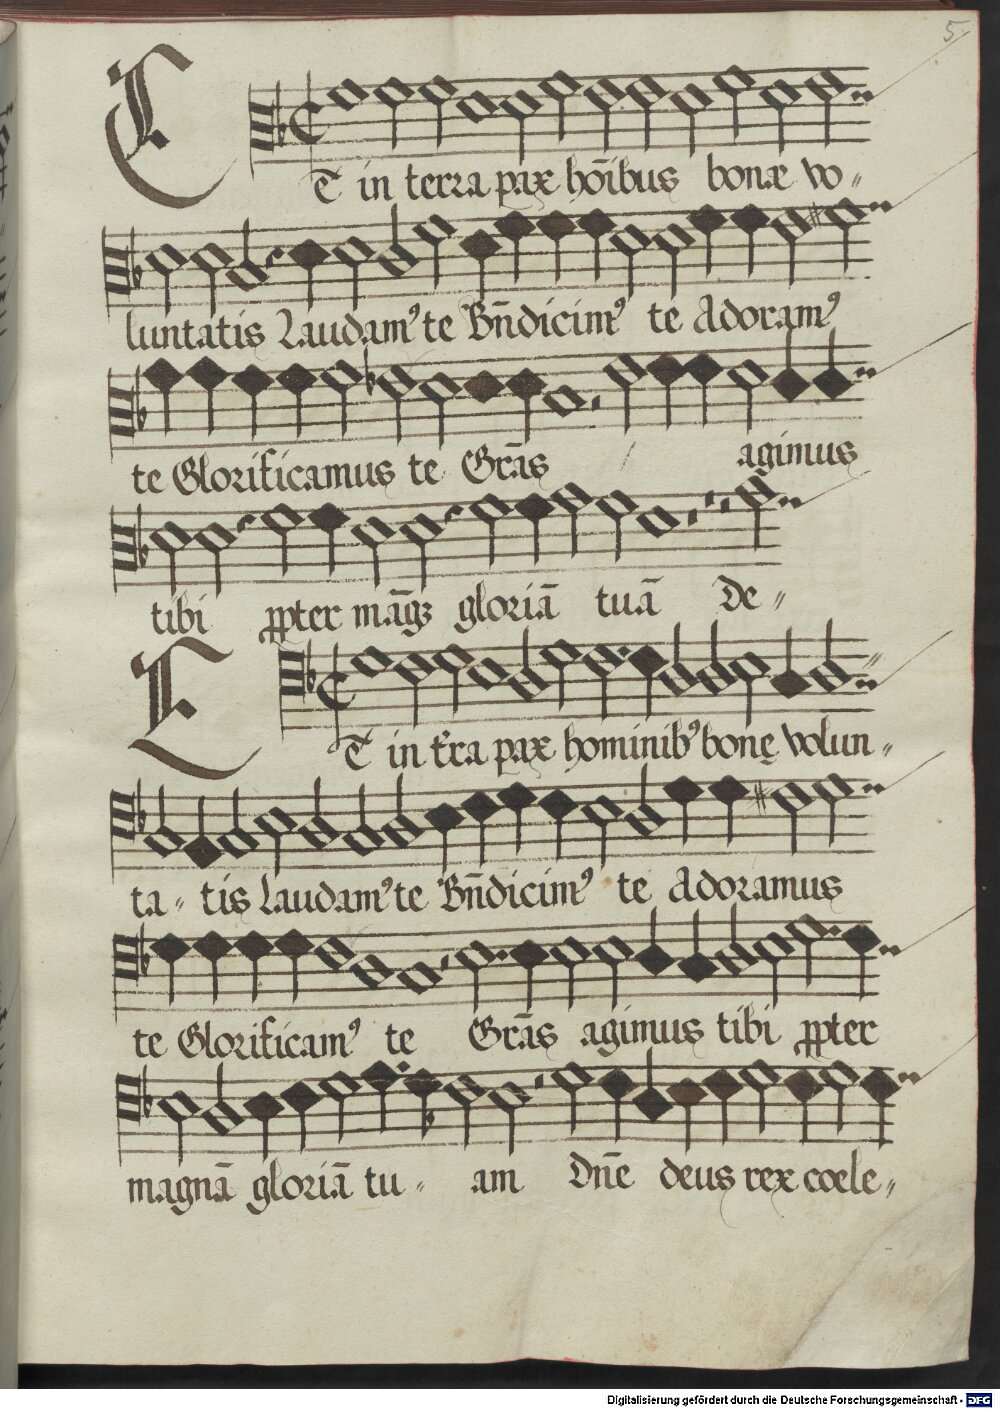 5.
ET in terra pax hoībus bonæ vo„
luntatis Laudamꝰ te Bn̄dicimꝰ te Adoramꝰ
te Glorificamus te Grās agimus
tibi ꝓpter māgꝫ gloriā tuā De„
ET in tr̄a pax hominibꝰ bonę volun„
ta„ tis Laudamꝰ te Bn̄dicimꝰ te Adoramus
te Glorificamꝰ te Grās agimus tibi ꝓpter
magnā gloriā tu„ am Dn̄e deus rex coele„
Digitalisierung gefördert durch die Deutsche Forschungsgemeinschaft - DFG